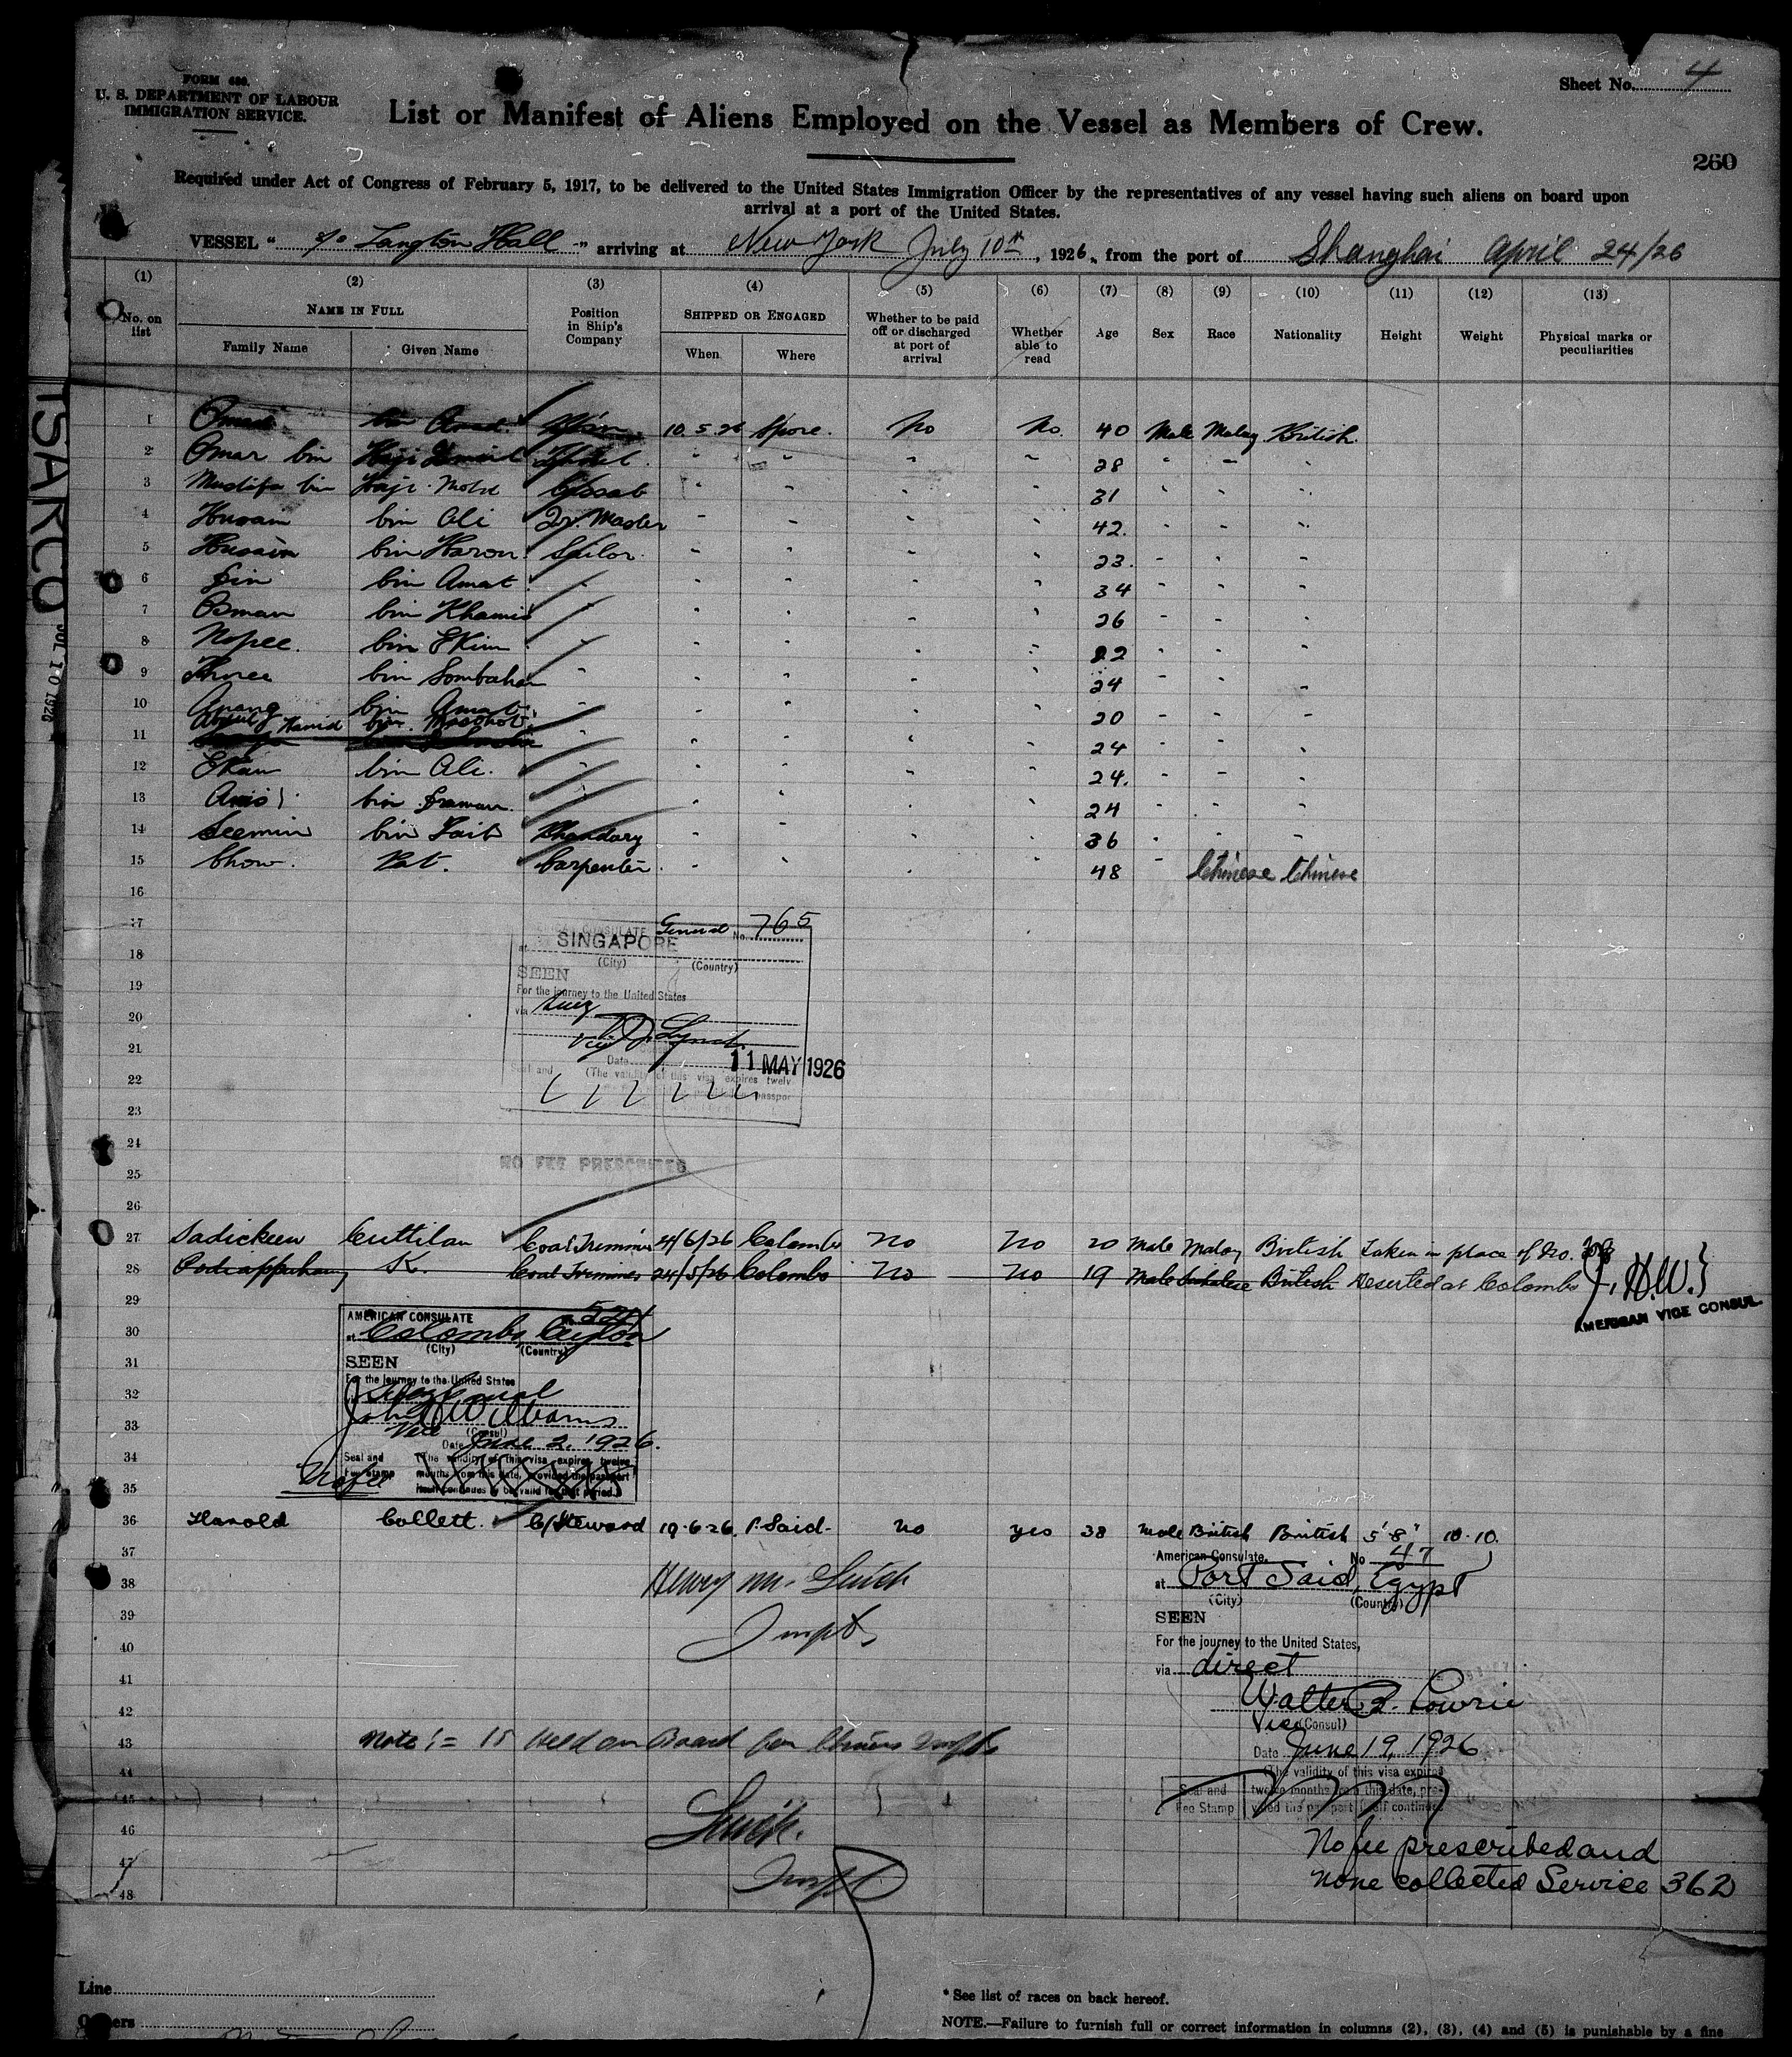 FORM 680.
U. S. DEPARTMENT OF LABOUR
IMMIGRATION SERVICE.
Sheet No. 4
List or Manifest of Aliens Employed on the Vessel as Members of Crew.
260
Required under Act of Congress of February 5, 1917, to be delivered to the United States Immigration Officer by the representatives of any vessel having such aliens on board upon
arrival at a port of the United States.
VESSEL " s/s Langton Hall " arriving at New York July 10th, 1926, from the port of Shanghai April 24/26
(1) (2) (3) (4) (5) (6) (7) (8) (9) (10) (11) (12) (13)
No. on list NAME IN FULL Family Name Given Name Position in Ship's Company SHIPPED OR ENGAGED When Where Whether to be paid off or discharged at port of arrival Whether able to read Age Sex Race Nationality Height Weight Physical marks or peculiarities
1 10.5.26 Spore. No No. 40 Male Malay British
2 Omar bin Haji " " " " 28 " " "
3 Mustafa bin Haji Mohd Cassab " " " " 31 " " "
4 Husain bin Ali Qr. Master " " " " 42. " " "
5 Husain bin Haron Sailor " " " " 23. " " "
6 bin Amat " " " " " 34 " " "
7 Osman bin Khamis " " " " " 26 " " "
8 bin Ekim " " " " " 22 " " "
9 bin Sombahan " " " " " 24 " " "
10 Awang bin Amat " " " " " 20 " " "
Abdul Hamid bin Masohot
11 " " " " " 24 " " "
12 Ekau bin Ali. " " " " " 24. " " "
13 Anis bin " " " " " 24 " " "
14 Seemin bin Bhandary " " " " 36 " " "
15 Chow. Carpenter. " " " " 48 " Chinese Chinese
16
17
CONSULATE General No. 765
18
at SINGAPORE
(City) (Country)
SEEN
19
For the journey to the United States
20
via Suez
Lynch
21
Date 11 MAY 1926
22
Seal and (The validity of this visa expires twelv
passpor
23
24
NO FEE PRESCRIBED
25
26
27 Sadickeen Cuttilan Coal Trimmer 24/6/26 Colombo No No 20 Male Malay British Taken in place of No. 28
28 K. Coal Trimmer 24/5/26 Colombo No No 19 Male British Deserted at Colombo J.H.W.
AMERICAN VICE CONSUL.
29
AMERICAN CONSULATE
30
at Colombo Ceylon
(City) (Country)
31
SEEN
For the journey to the United States
32
via Suez Canal
John H Williams
33
Vice (Consul)
Date June 2, 1926.
34
Seal and Fee stamp (The validity of this visa expires twelve
months from this date, provided the passport
itself continues to be valid for that period.)
No fee
35
36 Harold Collett. C/Steward 19.6.26. P. Said. No yes 38 Male British British 5' 8" 10.10.
37
American Consulate, No 47
38
at Port Said, Egypt
(City) (Country)
39
SEEN
40
For the journey to the United States,
41
via direct
42
Walter B. Lowrie
Vice (Consul)
43
Note:= 15 Held on Board for Chinese
Date June 19, 1926
(The validity of this visa expires
44
Seal and Fee Stamp twelve months from this date, pro-
vided the passport itself continues
45
46
No fee prescribed and
47
none collected Service 362
48
Line
Owners
* See list of races on back hereof.
NOTE.—Failure to furnish full or correct information in columns (2), (3), (4) and (5) is punishable by a fine
TSARCO
JUL 10 1926